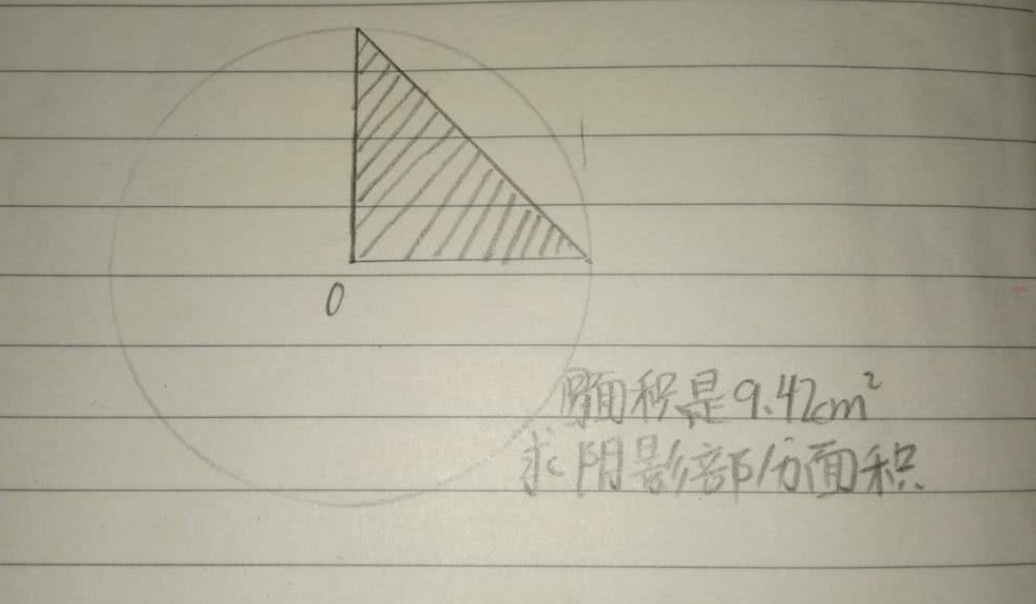 O
圆面积是9.42cm²
求阴影部分面积